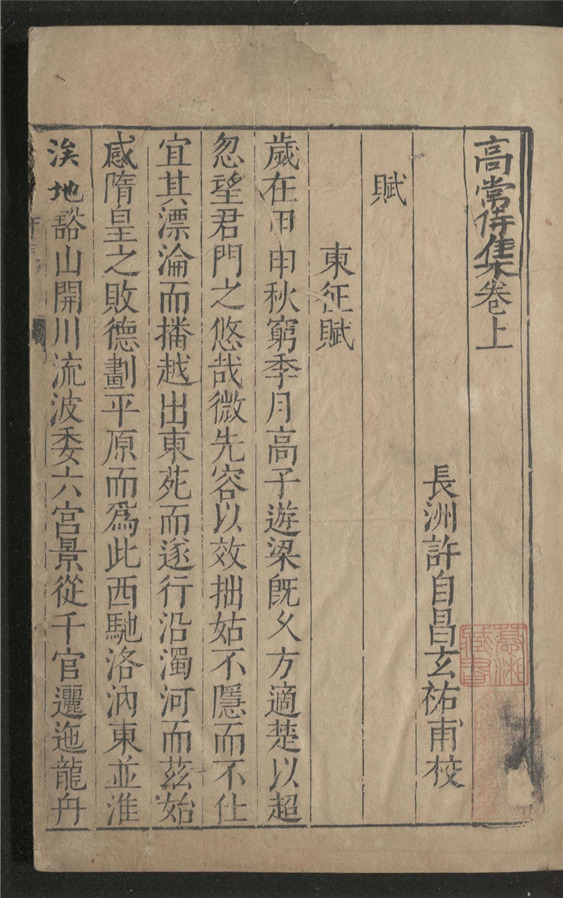 高常侍集卷上
長洲許自昌玄祐甫校
賦
東征賦
歲在甲申秋窮季月高子遊梁既久方適楚以超
忽望君門之悠哉微先容以效拙姑不隱而不仕
宜其漂淪而播越出東苑而遂行沿濁河而茲始
感隋皇之敗德劃平原而爲此西馳洛汭東並淮
涘地豁山開川流波委六宮景從千官邐迤龍舟